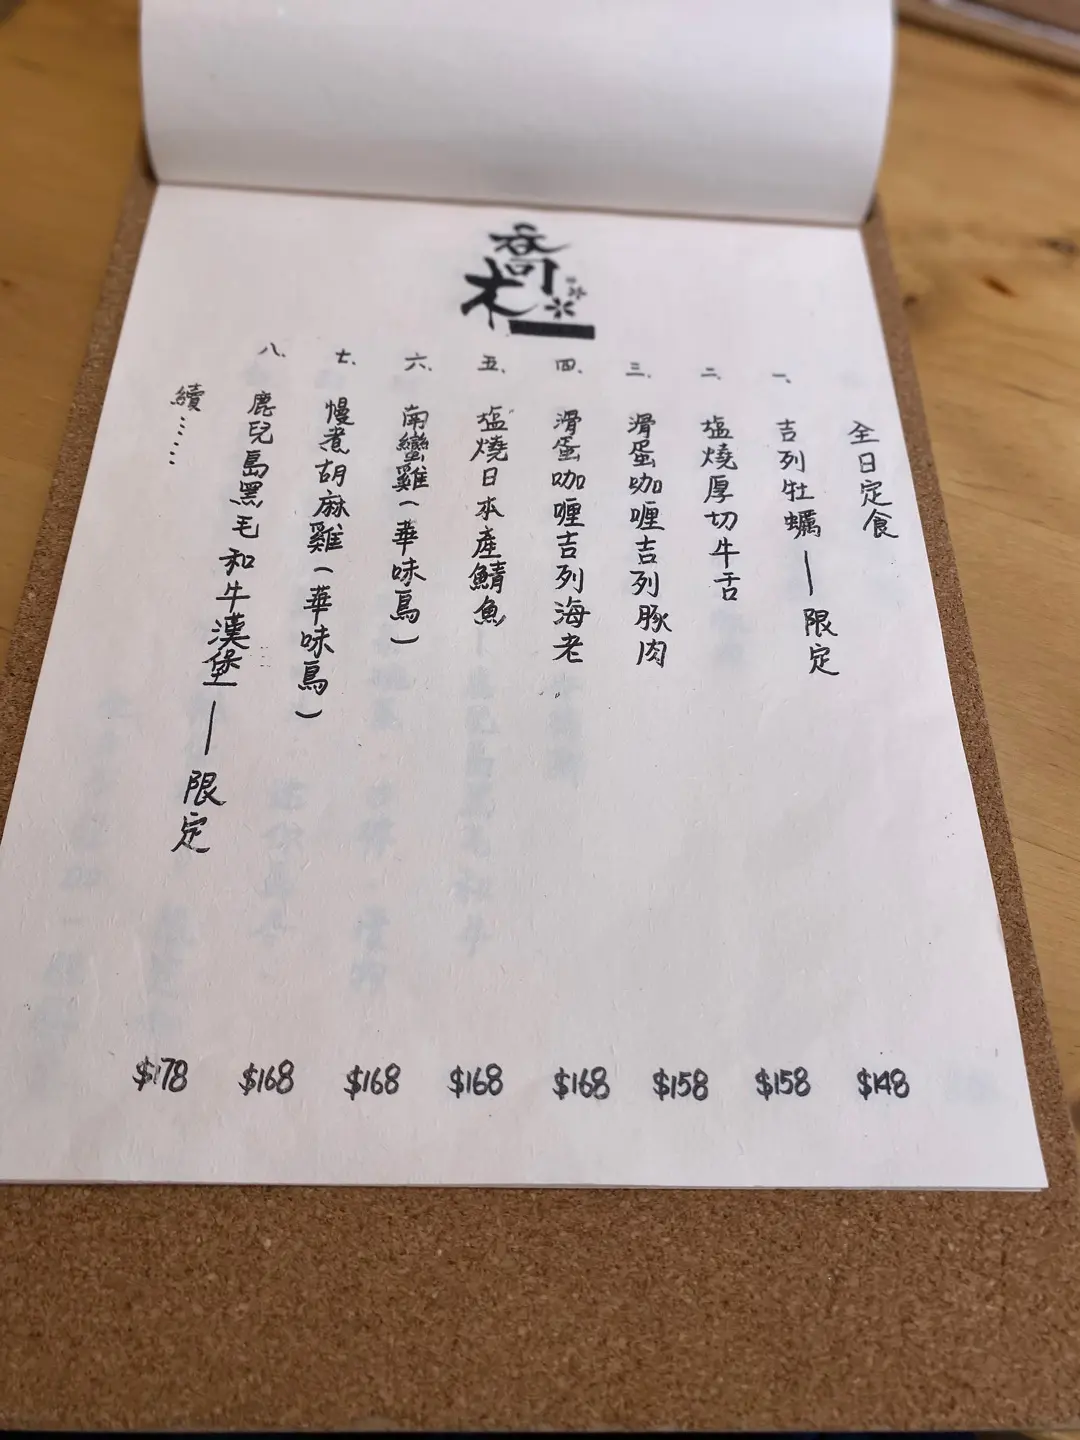 喬木
全日定食
一、吉列牡蠣—限定
二、塩燒厚切牛舌
三、滑蛋咖喱吉列豚肉
四、滑蛋咖喱吉列海老
五、塩燒日本產鯖魚
六、南蠻雞(華味鳥)
七、慢煮胡麻雞(華味鳥)
八、鹿兒島黑毛和牛漢堡—限定
續……
$148
$158
$158
$168
$168
$168
$168
$178